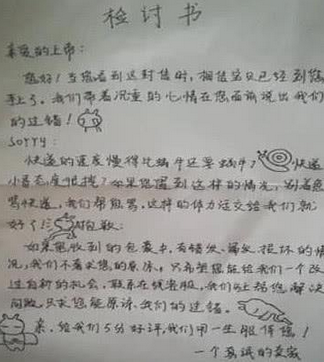 检讨书
亲爱的上帝:
您好!当您看到这封信时,相信宝贝已经到您
手上了。我们带着沉重的心情在您面前说出我们
的过错!
Sorry:
快递的速度慢得比蜗牛还要蜗牛?快递
小哥态度很拽?如果您遇到这样的情况,别着急
骂快递,我们帮您骂,这样的体力活交给我们就
好了!包裹:
如果您收到的包裹中,有错发、漏发、损坏的情
况,我们不奢求您的原谅,只希望您能给我们一个改
过自新的机会,联系在线客服,我们马上给您解决
问题,只求您能原谅我们的过错。
亲,给我们5分好评,我们用一生服侍您!
一个真诚的卖家